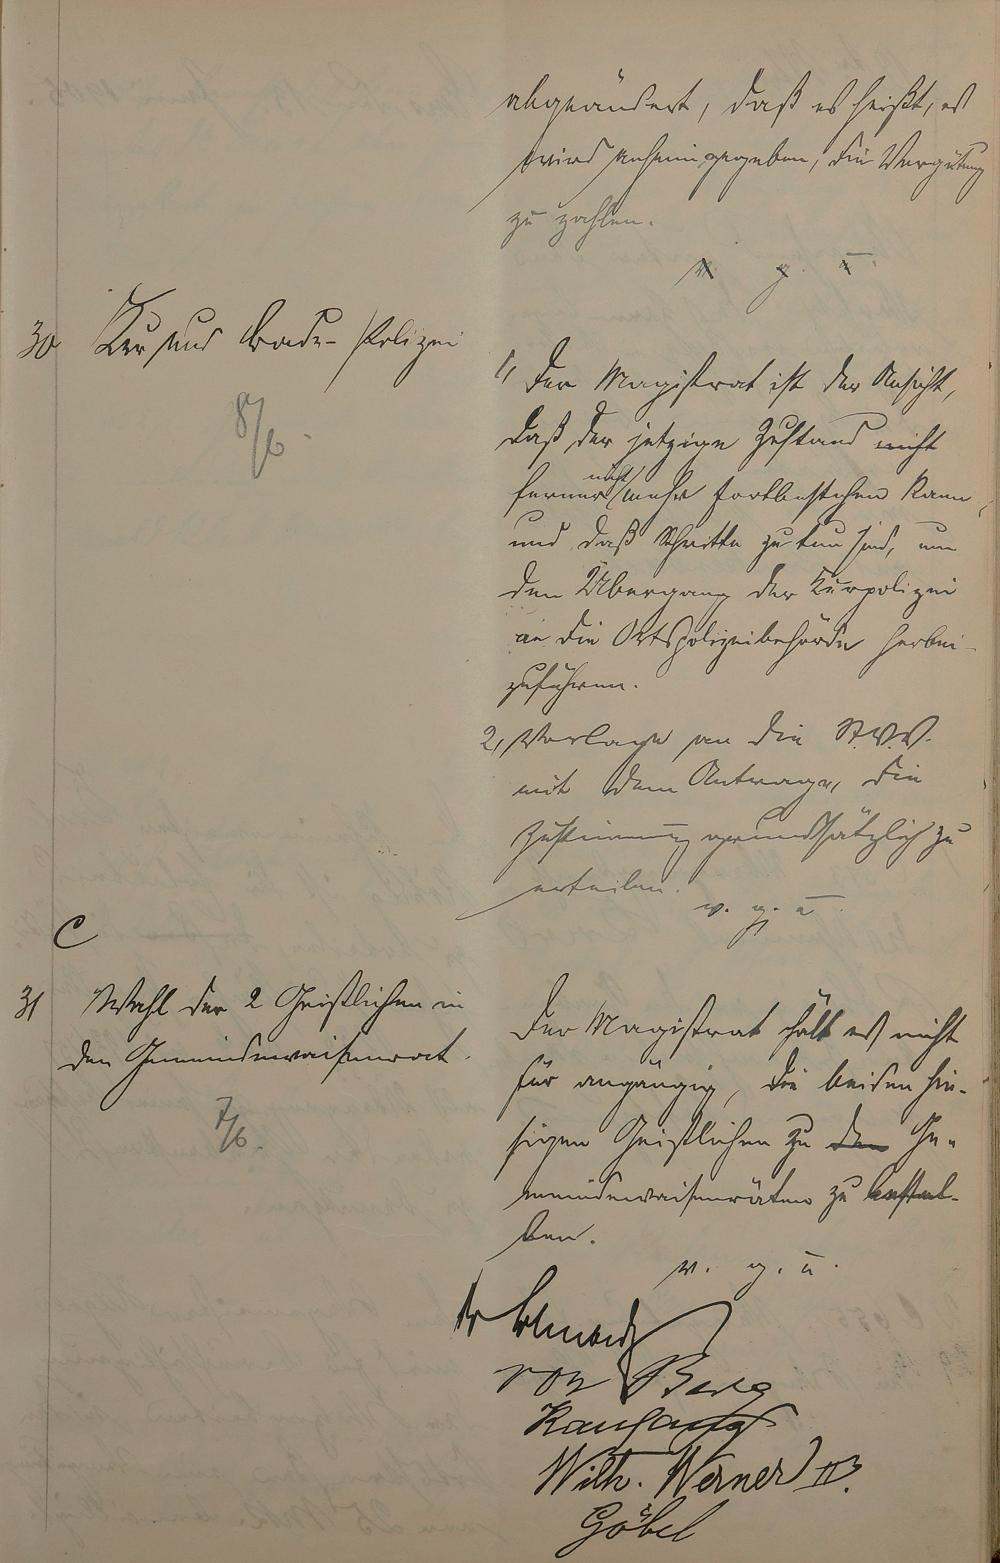 abgeändert, daß es heißt, es
wird anheimgegeben, die Vergütung
zu zahlen.
v. g. u.
30 Kur und Bade-Polizei
8/6
1, Der Magistrat ist der Ansicht,
daß der jetzige Zustand nicht
ferner nicht mehr fortbestehen kann,
und daß Schritte zu tun sind, um
den Übergang der Kurpolizei
an die Ortspolizeibehörde herbei-
zuführen.
2, Vorlage an die St.V.V.
mit dem Antrage, die
Zustimmung grundsätzlich zu
erteilen.
v. g. u.
C
31 Wahl der 2 Geistlichen in
den Gemeindewaisenrat.
7/6.
Der Magistrat hält es nicht
für angängig, die beiden hie-
sigen Geistlichen zu den Ge-
meindewaisenräten zu bestel-
len.
v. g. u.
von Berg
Wilh. Werner II
Göbel